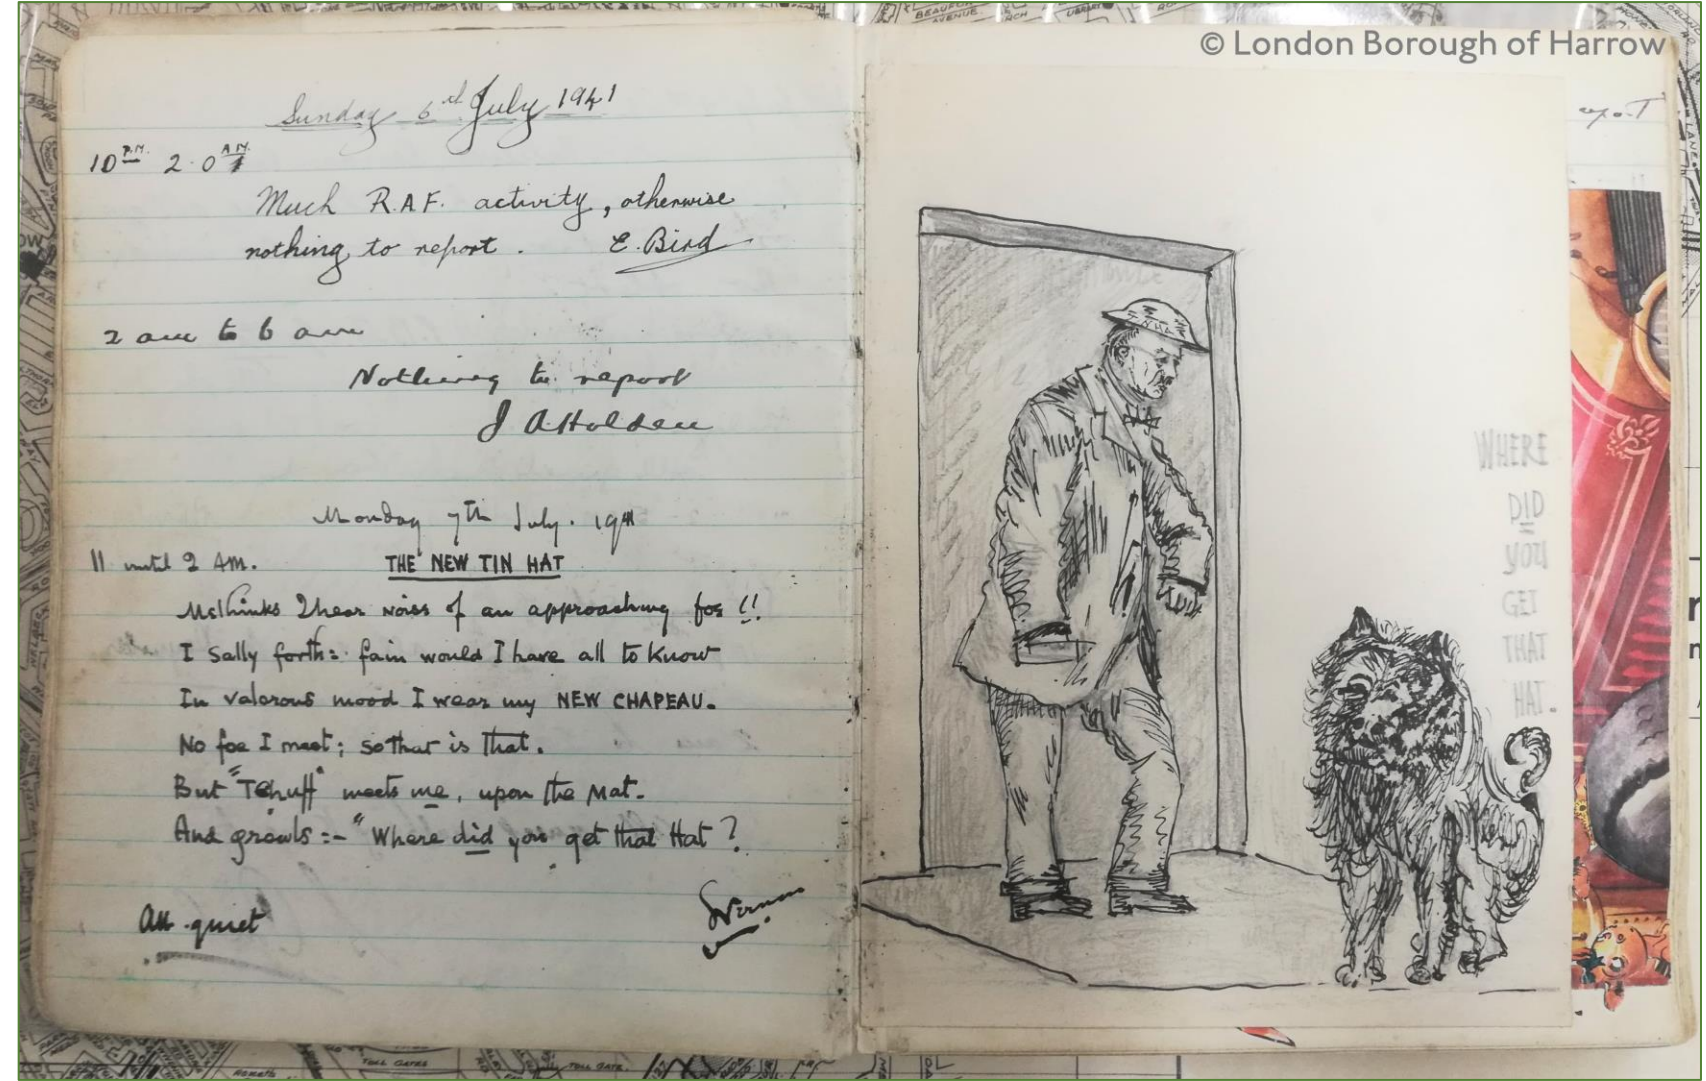 © London Borough of Harrow
Sunday 6th July 1941
10 P.M. 2.0 A.M.
Much R.A.F. activity, otherwise
nothing to report. E. Bird
2 am to 6 am
Nothing to report
J A Holden
Monday 7th July. 1941
11 until 2 AM. THE NEW TIN HAT
Methinks I hear noiss of an approaching foe !!
I Sally forth:- fain would I have all to know
In valorous mood I wear my NEW CHAPEAU.
No foe I meet; so that is that.
But "Tchuff" meets me, upon the Mat.
And growls :- "Where did you get that Hat ?
All quiet
WHERE
DID
YOU
GET
THAT
HAT.
BEAUFORT
AVENUE
LIBRARY
TOLL GATES
TOLL GATE